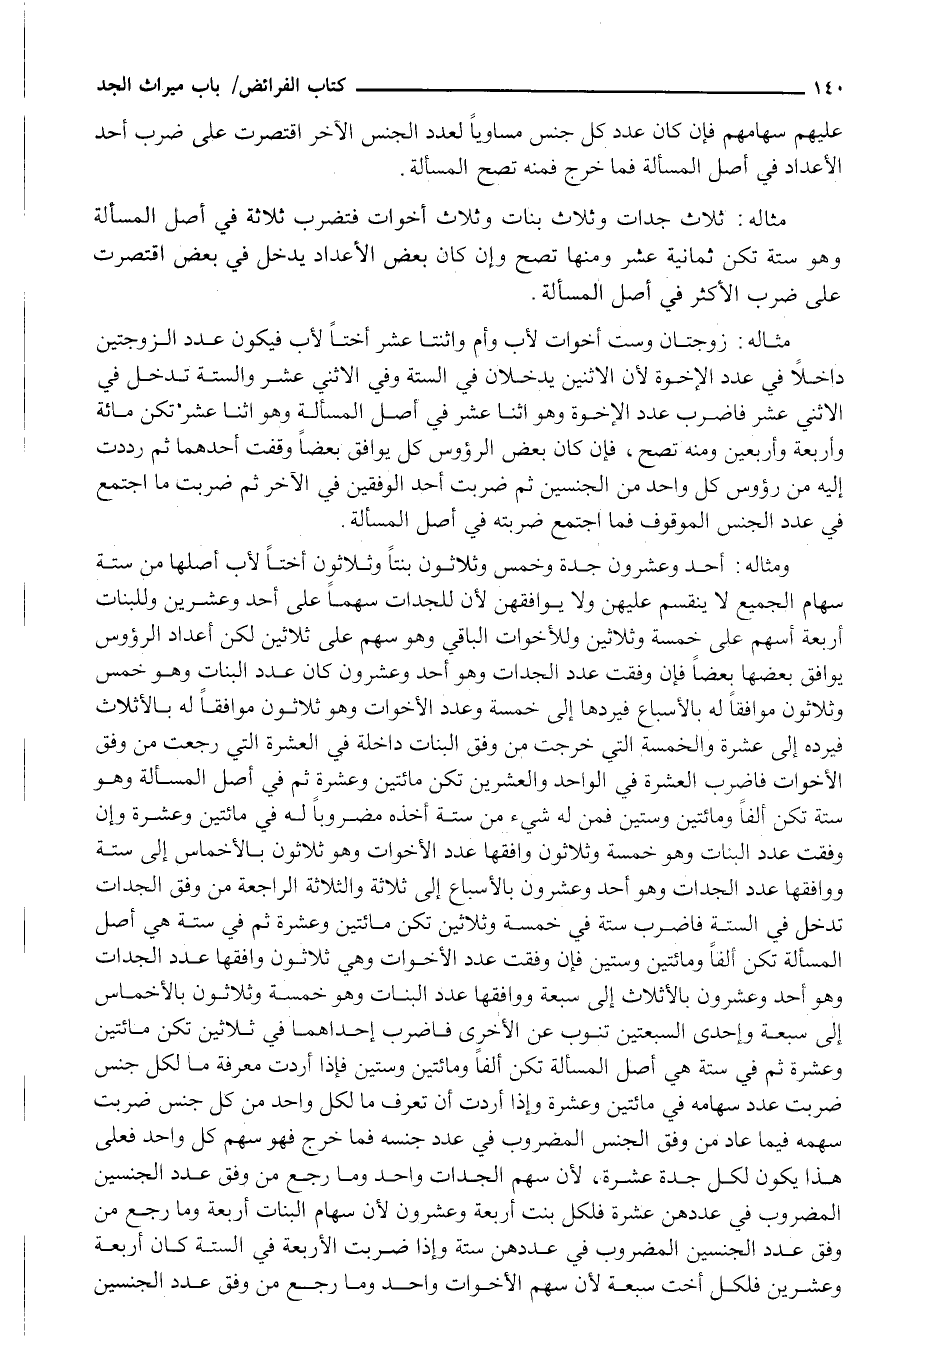 ١٤٠ كتاب الفرائض/ باب ميراث الجد
عليهم سهامهم فإن كان عدد كل جنس مساوياً لعدد الجنس الآخر اقتصرت على ضرب أحد
الأعداد في أصل المسألة فما خرج فمنه تصح المسألة .
مثاله : ثلاث جدات وثلاث بنات وثلاث أخوات فتضرب ثلاثة في أصل المسألة
وهو ستة تكن ثمانية عشر ومنها تصح وإن كان بعض الأعداد يدخل في بعض اقتصرت
على ضرب الأكثر في أصل المسألة .
مثاله : زوجتان وست أخوات لأب وأم واثنتا عشر أختاً لأب فيكون عدد الزوجتين
داخلاً في عدد الإخوة لأن الاثنين يدخلان في الستة وفي الاثني عشر والستة تدخل في
الاثني عشر فاضرب عدد الإخوة وهو اثنا عشر في أصل المسألة وهو اثنا عشر تكن مائة
وأربعة وأربعين ومنه تصح ، فإن كان بعض الرؤوس كل يوافق بعضاً وقفت أحدهما ثم رددت
إليه من رؤوس كل واحد من الجنسين ثم ضربت أحد الوفقين في الآخر ثم ضربت ما اجتمع
في عدد الجنس الموقوف فما اجتمع ضربته في أصل المسألة .
ومثاله : أحد وعشرون جدة وخمس وثلاثون بنتاً وثلاثون أختاً لأب أصلها من ستة
سهام الجميع لا ينقسم عليهن ولا يوافقهن لأن للجدات سهماً على أحد وعشرين وللبنات
أربعة أسهم على خمسة وثلاثين وللأخوات الباقي وهو سهم على ثلاثين لكن أعداد الرؤوس
يوافق بعضها بعضاً فإن وقفت عدد الجدات وهو أحد وعشرون كان عدد البنات وهو خمس
وثلاثون موافقاً له بالأسباع فيردها إلى خمسة وعدد الأخوات وهو ثلاثون موافقاً له بالأثلاث
فيرده إلى عشرة والخمسة التي خرجت من وفق البنات داخلة في العشرة التي رجعت من وفق
الأخوات فاضرب العشرة في الواحد والعشرين تكن مائتين وعشرة ثم في أصل المسألة وهو
ستة تكن ألفاً ومائتين وستين فمن له شيء من ستة أخذه مضروباً له في مائتين وعشرة وإن
وفقت عدد البنات وهو خمسة وثلاثون وافقها عدد الأخوات وهو ثلاثون بالأخماس إلى ستة
ووافقها عدد الجدات وهو أحد وعشرون بالأسباع إلى ثلاثة والثلاثة الراجعة من وفق الجدات
تدخل في الستة فاضرب ستة في خمسة وثلاثين تكن مائتين وعشرة ثم في ستة هي أصل
المسألة تكن ألفاً ومائتين وستين فإن وفقت عدد الأخوات وهي ثلاثون وافقها عدد الجدات
وهو أحد وعشرون بالأثلاث إلى سبعة ووافقها عدد البنات وهو خمسة وثلاثون بالأخماس
إلى سبعة وإحدى السبعتين تنوب عن الأخرى فاضرب إحداهما في ثلاثين تكن مائتين
وعشرة ثم في ستة هي أصل المسألة تكن ألفاً ومائتين وستين فإذا أردت معرفة ما لكل جنس
ضربت عدد سهامه في مائتين وعشرة وإذا أردت أن تعرف ما لكل واحد من كل جنس ضربت
سهمه فيما عاد من وفق الجنس المضروب في عدد جنسه فما خرج فهو سهم كل واحد فعلى
هذا يكون لكل جدة عشرة، لأن سهم الجدات واحد وما رجع من وفق عدد الجنسين
المضروب في عددهن عشرة فلكل بنت أربعة وعشرون لأن سهام البنات أربعة وما رجع من
وفق عدد الجنسين المضروب في عددهن ستة وإذا ضربت الأربعة في الستة كان أربعة
وعشرين فلكل أخت سبعة لأن سهم الأخوات واحد وما رجع من وفق عدد الجنسين